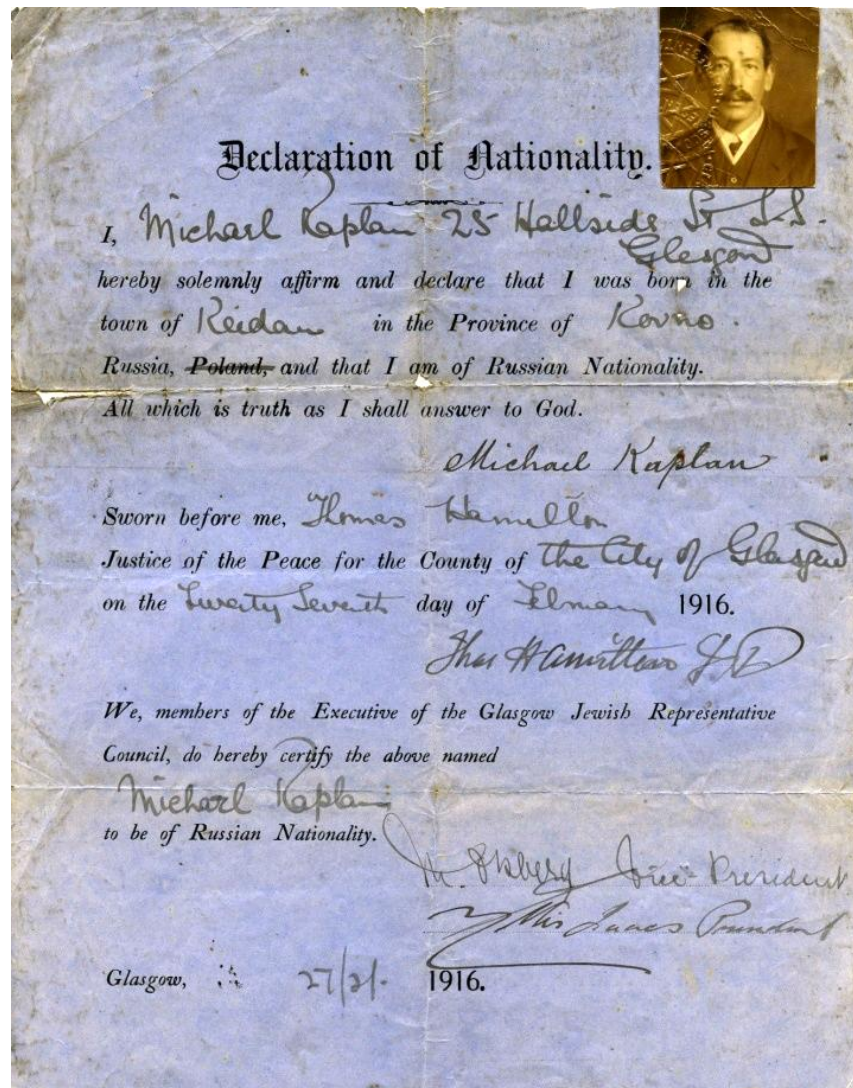 Declaration of Nationality.
I, Michael Kaplan 25 Hallside St S.S.
Glasgow
hereby solemnly affirm and declare that I was born in the
town of Keidan in the Province of Kovno.
Russia, Poland, and that I am of Russian Nationality.
All which is truth as I shall answer to God.
Michael Kaplan
Sworn before me, Thomas Hamilton
Justice of the Peace for the County of the City of Glasgow
on the Twenty Seventh day of February 1916.
Thos Hamilton J.P.
We, members of the Executive of the Glasgow Jewish Representative
Council, do hereby certify the above named
Michael Kaplan
to be of Russian Nationality.
M. Vice-President
Isaacs President
Glasgow, 27/2/- 1916.